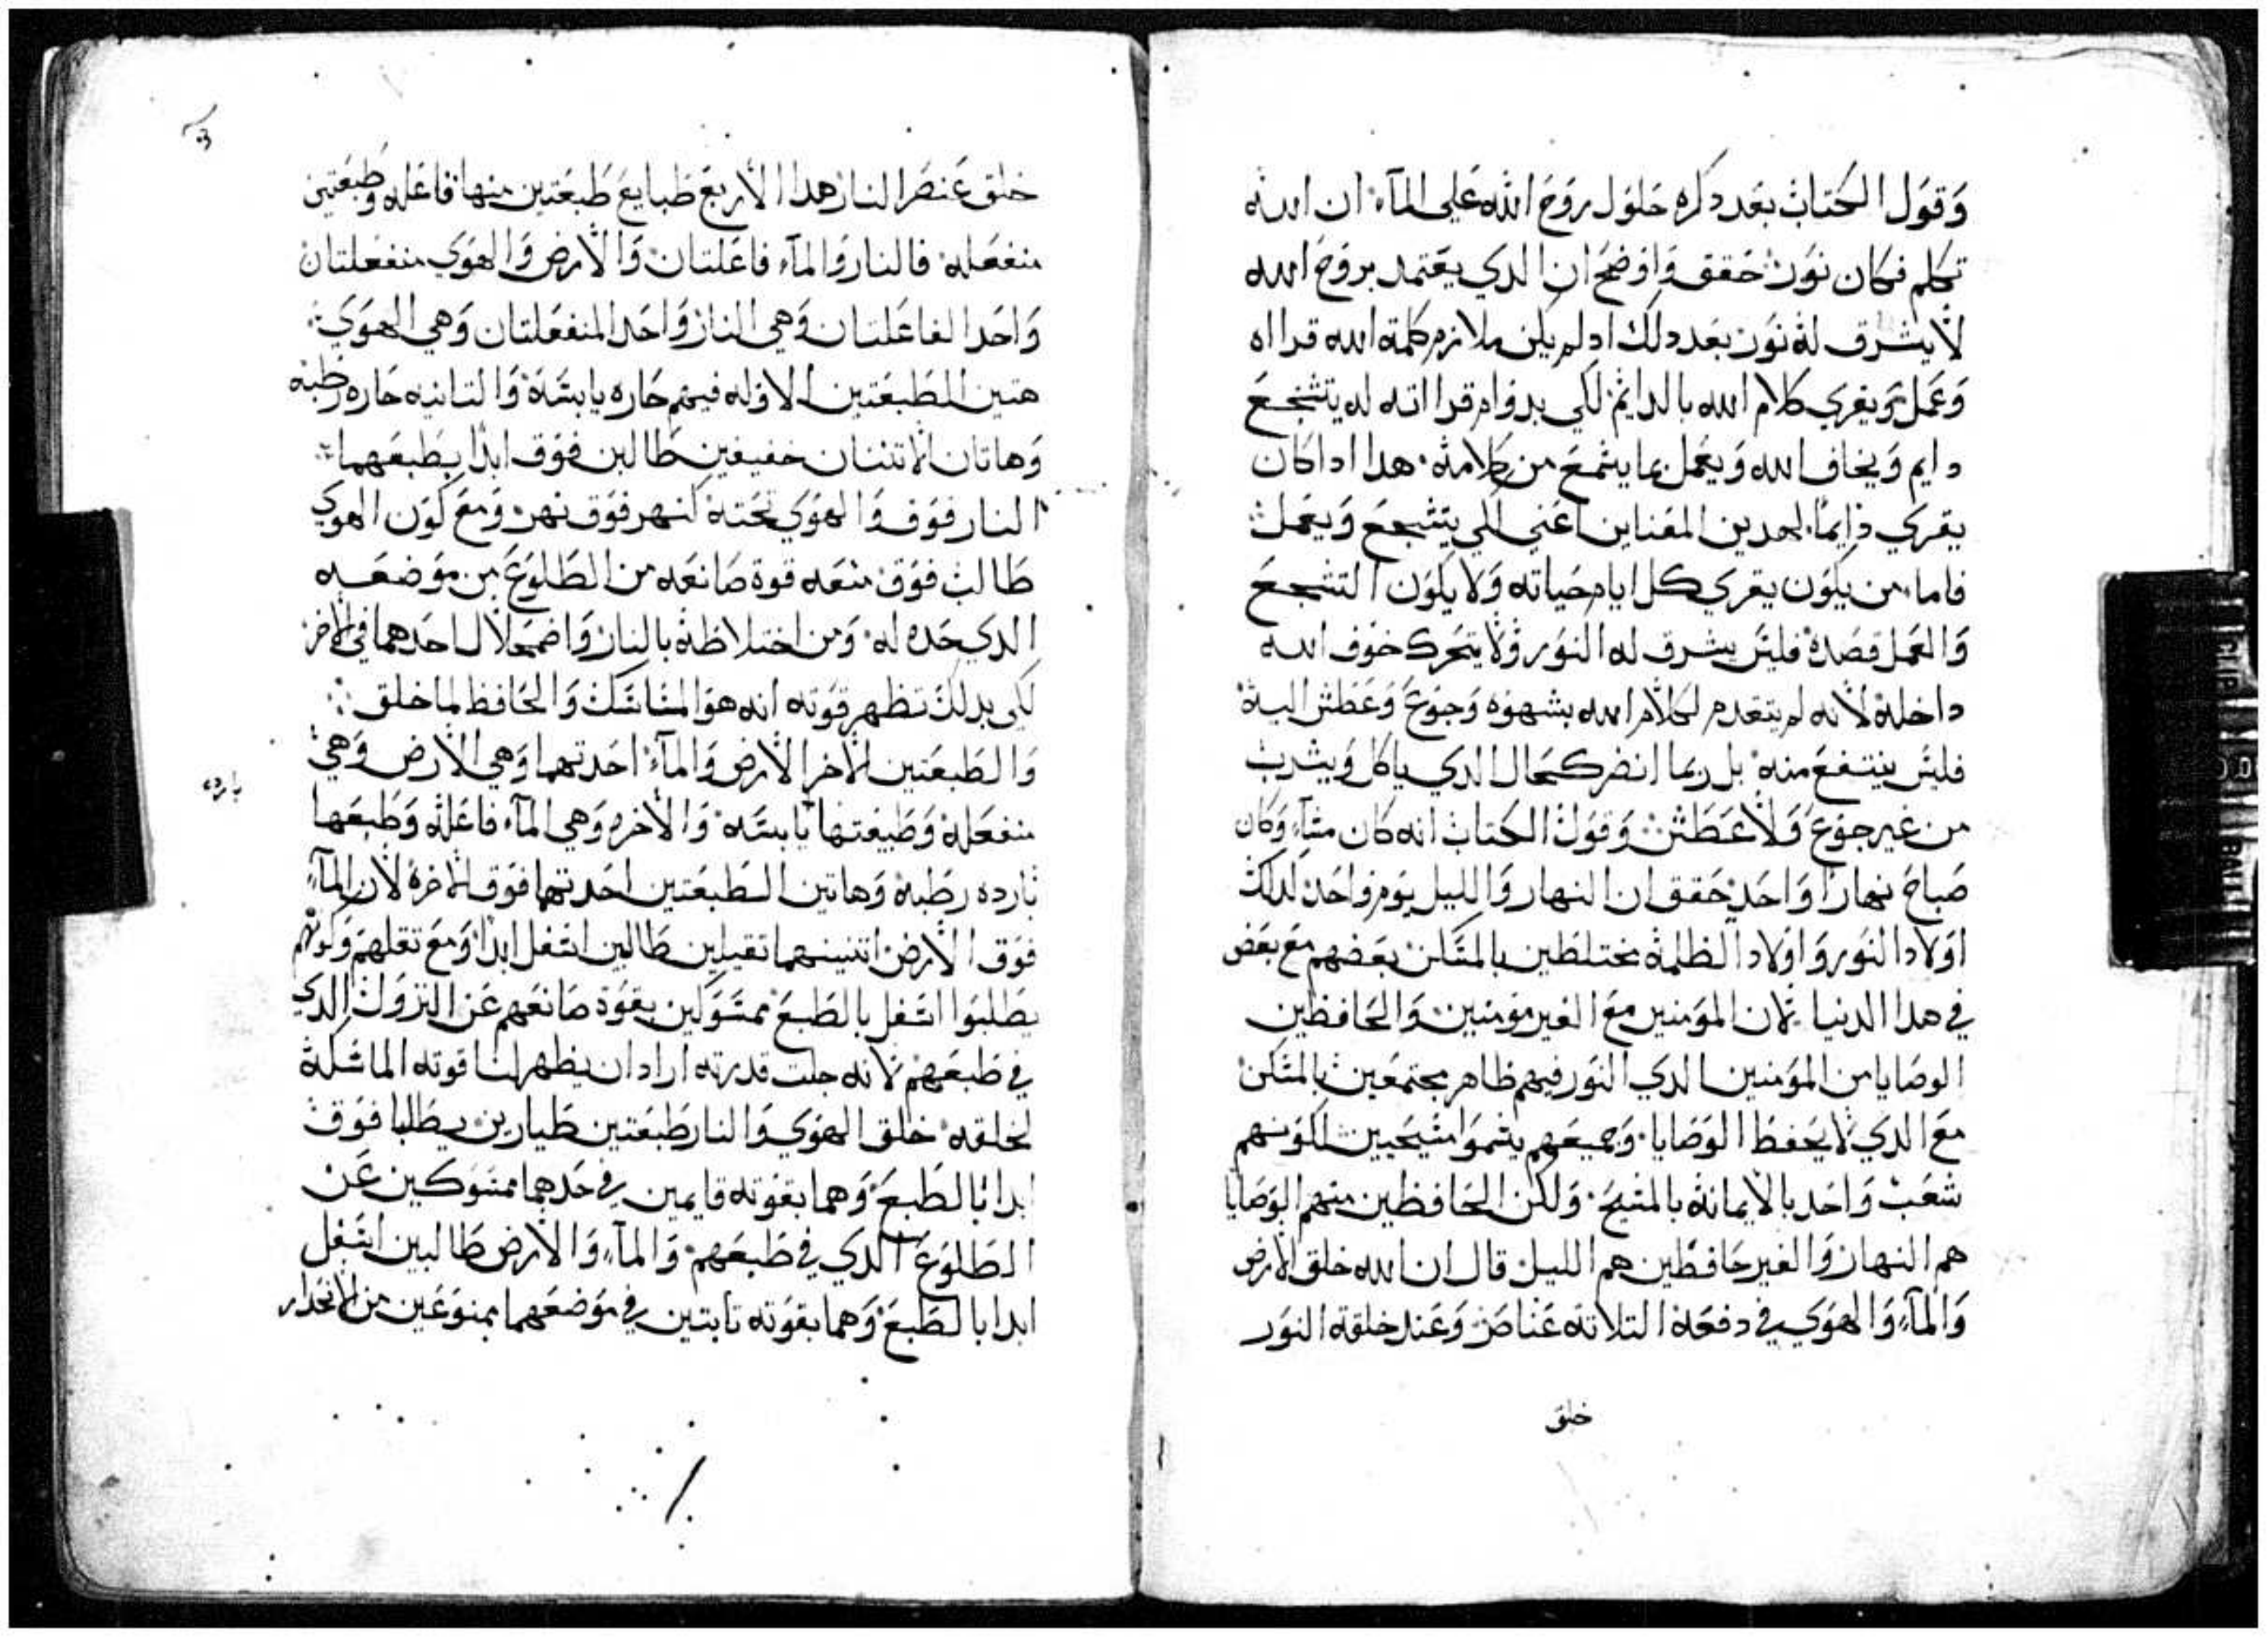 وقول الكتاب بعد دكره حلول روح الله على المآء ان الله
تكلم فكان نور حقق واوضح ان الدي يعتمد بروح الله
لا يشرق له نور بعد دلك ادلم يكن ملازم كلمة الله قرااه
وعمل ويقري كلام الله بالدايم لكي بدوام قرااته له يتشجع
دايم ويخاف الله ويعمل بما يسمع من كلامه هدا اداكان
يقري دايما لحدين المعناين اعني لكي يتشجع ويعمل
فاما من يكون يقري كل ايام حياته ولا يكون التشجع
والعمل قصده فليس يشرق له النور ولا يتحرك خوف الله
داخله لانه لم يتقدم لكلام الله بشهوه وجوع وعطش اليه
فليس ينتفع منه بل ربما انضر كحال الدي ياكل ويشرب
من غير جوع ولا عطش وقول الكتاب انه كان مسآء وكان
صباح نهارا واحد حقق ان النهار والليل يوم واحد لدلك
اولاد النور واولاد الظلمة مختلطين بالمسكن بعضهم مع بعض
في هدا الدنيا لان المومنين مع الغير مومنين والحافظين
الوصايا من المومنين الدي النور فيهم ظاهر مجتمعين بالمسكن
مع الدي لا يحفظ الوصايا وجميعهم يسموا مسيحيين لكونهم
شعب واحد بالايمانة بالمسيح ولكن الحافظين منهم الوصايا
هم النهار والغير حافظين هم الليل قال ان الله خلق الارض
والمآء والهوي في دفعة التلاتة عناصر وعند خلقة النور
خلق
خلق عنصر النار هدا الاربع طبايع طبعتين منها فاعله وطبعتين
منفعله فالنار والمآء فاعلتان والارض والهوي منفعلتان
واحد الفاعلتان وهي النار واحد المنفعلتان وهي الهوي
هتين الطبعتين الاوله فيهم حاره يابسة والتانيه حاره رطبه
وهاتان الاتنتان خفيفين طالبن فوق ابدا بطبعهما
النار فوق والهوي تحته كنهر فوق نهر ومع كون الهوي
طالب فوق منعه قوة صانعه من الطلوع من موضعه
الدي حده له ومن اختلاطه بالنار واضمحلال احدهما في الاخر
لكي بدلك تظهر قوته انه هو الماسك والحافظ لما خلق
والطبعتين الاخر الارض والمآء احدتهما وهي الارض وهي
بارده
منفعله وطبيعتها يابسه والاخره وهي المآء فاعله وطبعها
بارده رطبه وهاتين الطبعتين احدتهما فوق الاخرة لان المآء
فوق الارض اتنينهما تقيلين طالبين اسفل ابدا ومع تقلهم وكونهم
يطلبوا اسفل بالطبع ممسوكين بقوة صانعهم عن النزول الدي
في طبعهم لانه جلت قدرته اراد ان يظهر لنا قوته الماسكة
لخلقه خلق الهوي والنار طبعتين طيارين يطلبا فوق
ابدا بالطبع وهما بقوته قايمين في حدهما ممسوكين عن
الطلوع الدي في طبعهم والمآء والارض طالبين اسفل
ابدا بالطبع وهما بقوته تابتين في موضعهما ممنوعين من الانحدار